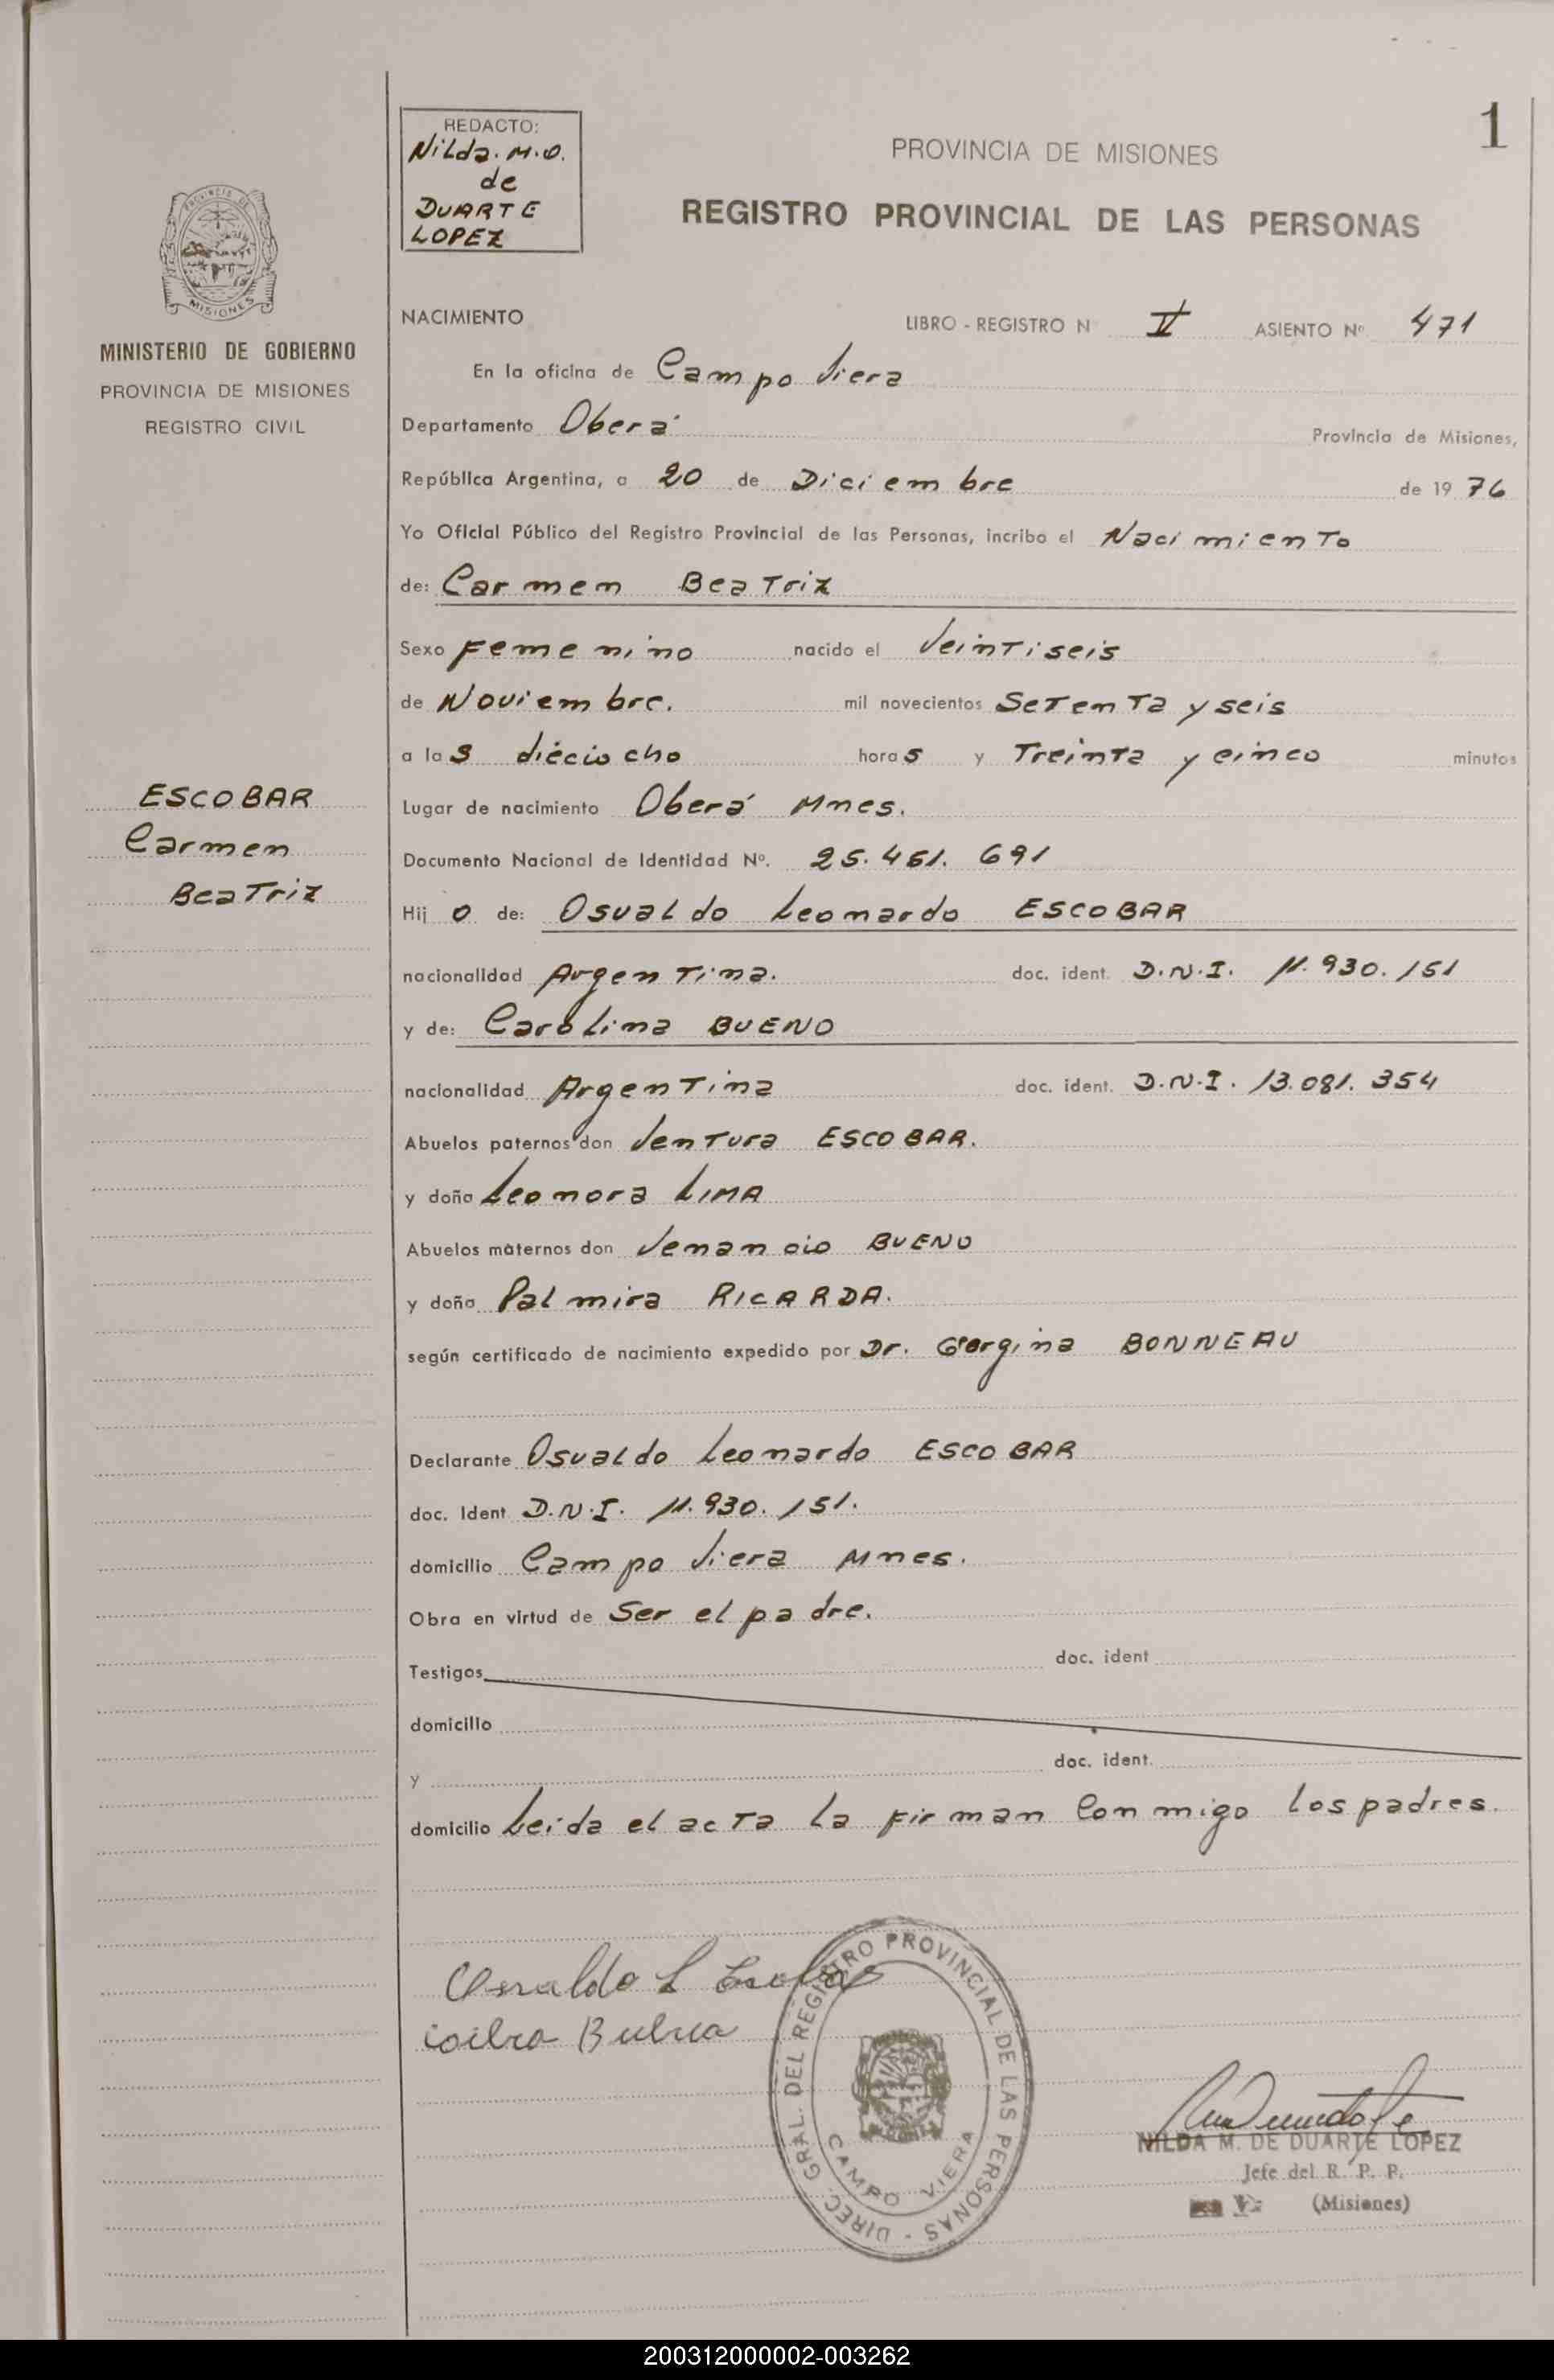 1
REDACTO:
Nilda. M.O.
de
DUARTE
LOPEZ
PROVINCIA DE MISIONES
REGISTRO PROVINCIAL DE LAS PERSONAS
MISIONES
MINISTERIO DE GOBIERNO
PROVINCIA DE MISIONES
REGISTRO CIVIL
ESCOBAR
Carmen
Beatriz
NACIMIENTO LIBRO - REGISTRO N V ASIENTO Nº 471
En la oficina de Campo Viera
Departamento Oberá Provincia de Misiones,
República Argentina, a 20 de Diciembre de 19 76
Yo Oficial Público del Registro Provincial de las Personas, incribo el Nacimiento
de: Carmen Beatriz
Sexo Femenino nacido el Veintiseis
de Noviembre. mil novecientos Setenta y seis
a las dieciocho horas y Treinta y cinco minutos
Lugar de nacimiento Oberá Mnes.
Documento Nacional de Identidad Nº. 25.461.691
Hijo de: Osvaldo Leonardo ESCOBAR
nacionalidad Argentina. doc. ident. D.N.I. 11.930.151
y de: Carolina BUENO
nacionalidad Argentina doc. ident. D.N.I. 13.081.354
Abuelos paternos don Ventura ESCOBAR.
y doña Leonora LIMA
Abuelos maternos don Venancio BUENO
y doña Palmira RICARDA.
según certificado de nacimiento expedido por Dr. Georgina BONNEAU
Declarante Osvaldo Leonardo ESCOBAR
doc. Ident D.N.I. 11.930.151.
domicilio Campo Viera Mnes.
Obra en virtud de Ser el padre.
Testigos doc. ident
domicilio
y doc. ident.
domicilio Leida el acta la firman Conmigo los padres.
Osvaldo L Escobar
DIREC. GRAL. DEL REGISTRO PROVINCIAL DE LAS PERSONAS -
CAMPO VIERA
NILDA M. DE DUARTE LOPEZ
Jefe del R. P. P.
(Misiones)
200312000002-003262